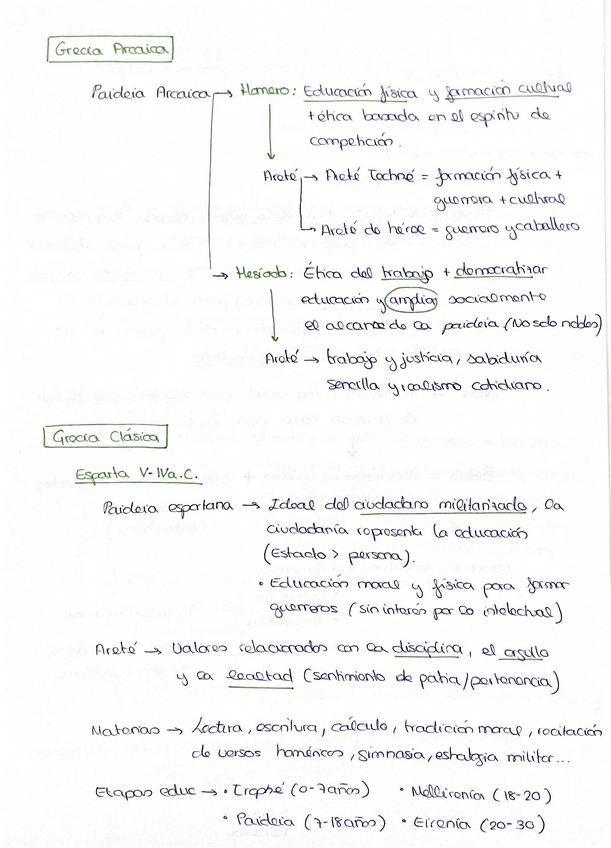 Grecia Arcaica
Paideia Arcaica → Homero: Educación física y formación cultural
+ ética basada en el espíritu de
competición.
Areté → Areté Techné = formación física +
guerrera + cultural
→ Areté de héroe = guerrero y caballero
→ Hesíodo: Ética del trabajo + democratizar
educación y ampliar socialmente
el alcance de la paideia (No solo nobles)
Areté → trabajo y justicia, sabiduría
sencilla y realismo cotidiano.
Grecia Clásica
Esparta V-IV a.C.
Paideia espartana → Ideal del ciudadano militarizado, la
ciudadanía representa la educación
(Estado > persona).
• Educación moral y física para formar
guerreros (sin interés por lo intelectual)
Areté → Valores relacionados con la disciplina, el orgullo
y la lealtad (sentimiento de patia/pertenencia)
Materias → Lectura, escritura, cálculo, tradición moral, recitación
de versos homéricos, gimnasia, estrategia militar...
Etapas educ → • Trophé (0-7 años) • Mellirenia (18-20)
• Paideia (7-18 años) • Eirenía (20-30)